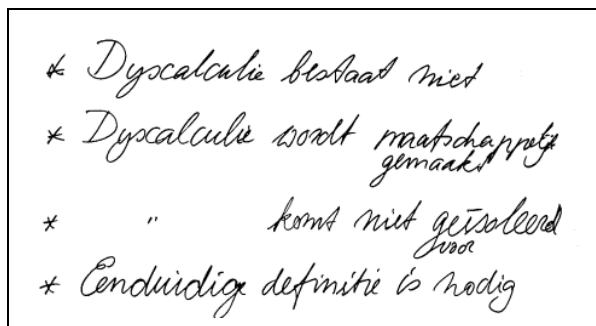 * Dyscalculie bestaat niet
* Dyscalculie wordt maatschappelijk
gemaakt
* " komt niet geïsoleerd
voor
* Eenduidige definitie is nodig